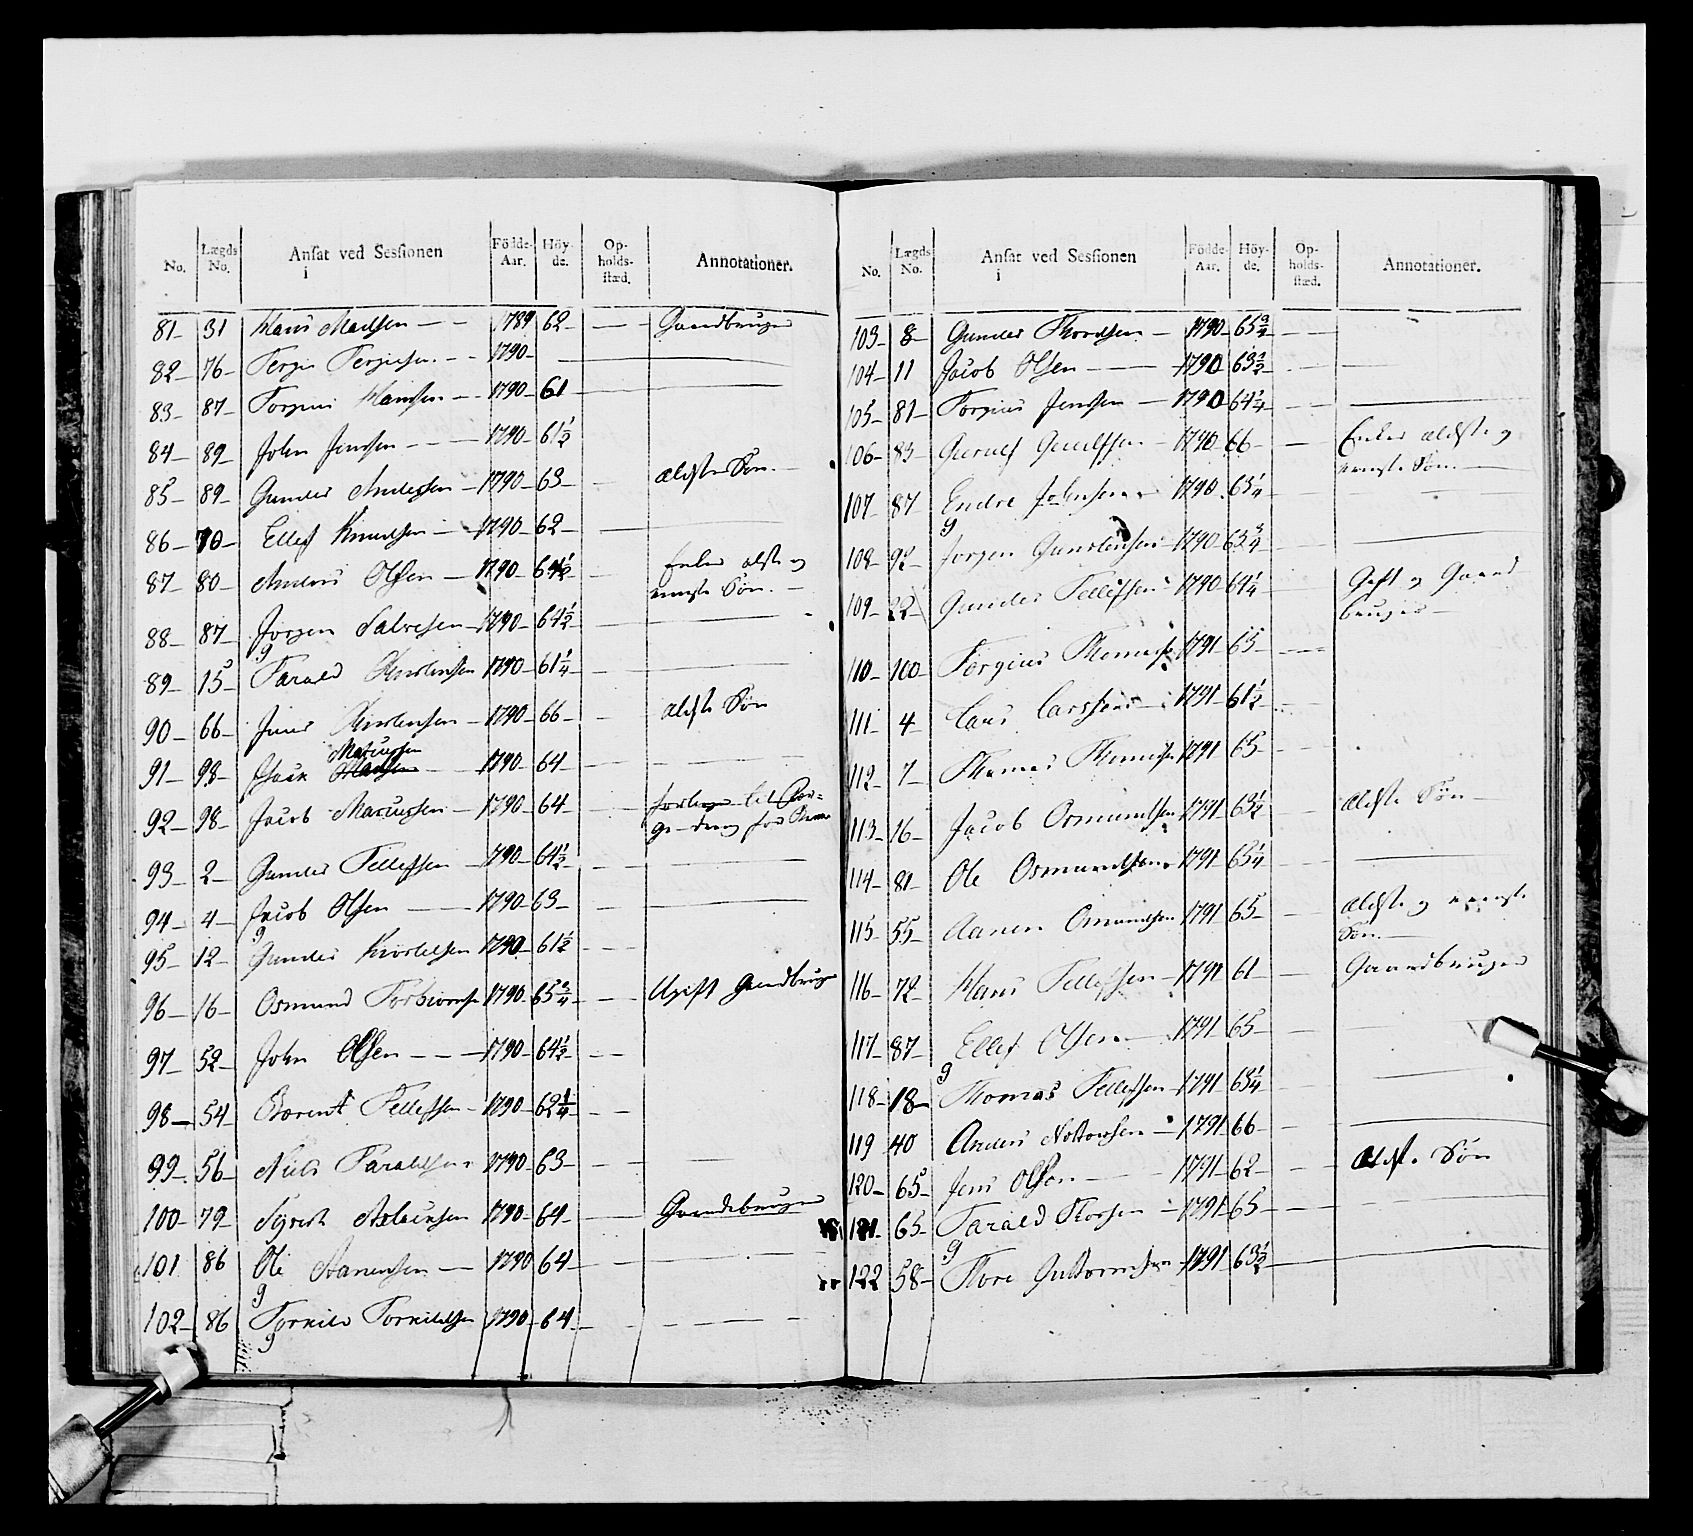 No. Lægds No. Ansat ved Sessionen i Födde-Aar. Höy-de. Op-holds-stæd. Annotationer.
81- 31 Hans Madsen - - 1789 62- - Gaardbruger
82- 76- Tergius Tergiusen - - 1790-
83- 87- Torgius Hansen - 1790- 61
84- 89- John Jenssen - - 1790- 61½
85- 89- Gunder Andersen - 1790- 63- ældste Søn.
86- 70- Ellef Knudsen - 1790- 62-
87- 80- Anders Olsen - 1790- 64½ Enkes ælste og
eneste Søn.
88- 87- Jørgen Salvesen - 1790- 64½
89- 15- Tarald Kittelsen 1790- 61¼
90- 66- Jens - 1790- 66- ældste Søn
Marcussen
91- 98- Isack Madsen - 1790- 64-
92- 98- Jacob Marcussen - 1790- 64
93- 2- Gunder Tellefsen - 1790- 64½
94- 4- Jacob Olsen - 1790- 63-
95- 12- Gunder 1790- 61½
96- 16- Osmund Torbiornsen 1790- 65¾ Ugift Gaardbruger
97- 52- John Olsen - - 1790- 64½
98- 54- Berent Tellefsen - 1790- 62¼
99- 56- Niels Taraldsen 1790- 63-
100- 79- Syvert Aslacksen 1790- 64- Gaardebruger
101 86 Ole Aanensen - 1790 64-
102- 86 Torkild Torkildsen 1790- 64-
No. Lægds No. Ansat ved Sessionen i Födde-Aar. Höy-de. Op-holds-stæd. Annotationer.
103- 8- Gunder Thordsen - 1790- 65¾
104- 11 Jacob Olsen - 1790 63½
105- 81- Torgius Jenssen - 1790 64¼
106- 83- Gunulf Gunulfsen - 1790- 66- Enkes ældste og
eneste Søn.
107- 87 Endre Johnsen 1790 63¼
108- 92- Jørgen Gundersen 1790- 63¾
109- 22 Gunder Tellefsen 1790- 64¼ Gift og Gaard
bruger
110- 100- Torgius Thomesen 1791- 65-
111- 4- Lars Larssen - 1791- 61½
112- 7- Thomas Thomesen 1791 65-
113- 16- Jacob Osmundsen 1791- 63½ ældste Søn
114- 81- Ole Osmundsen 1791- 63¼
115- 55- Aanen Omundsen 1791 65- ældste og eeneste
Søn.
116- 72- Hans Tellefsen - 1791 61 Gaardbruger
117- 87- Ellef Olsen - 1791 65-
118- 18- Thomas Tellefsen 1791- 63¼
119 40 Anders - 1791- 66-
120- 65- Jens Olsen - 1791- 62- ældste Søn
121- 65- Tarald Thorsen - 1791- 65-
122 58- Thore Guttormsen 1791 63½